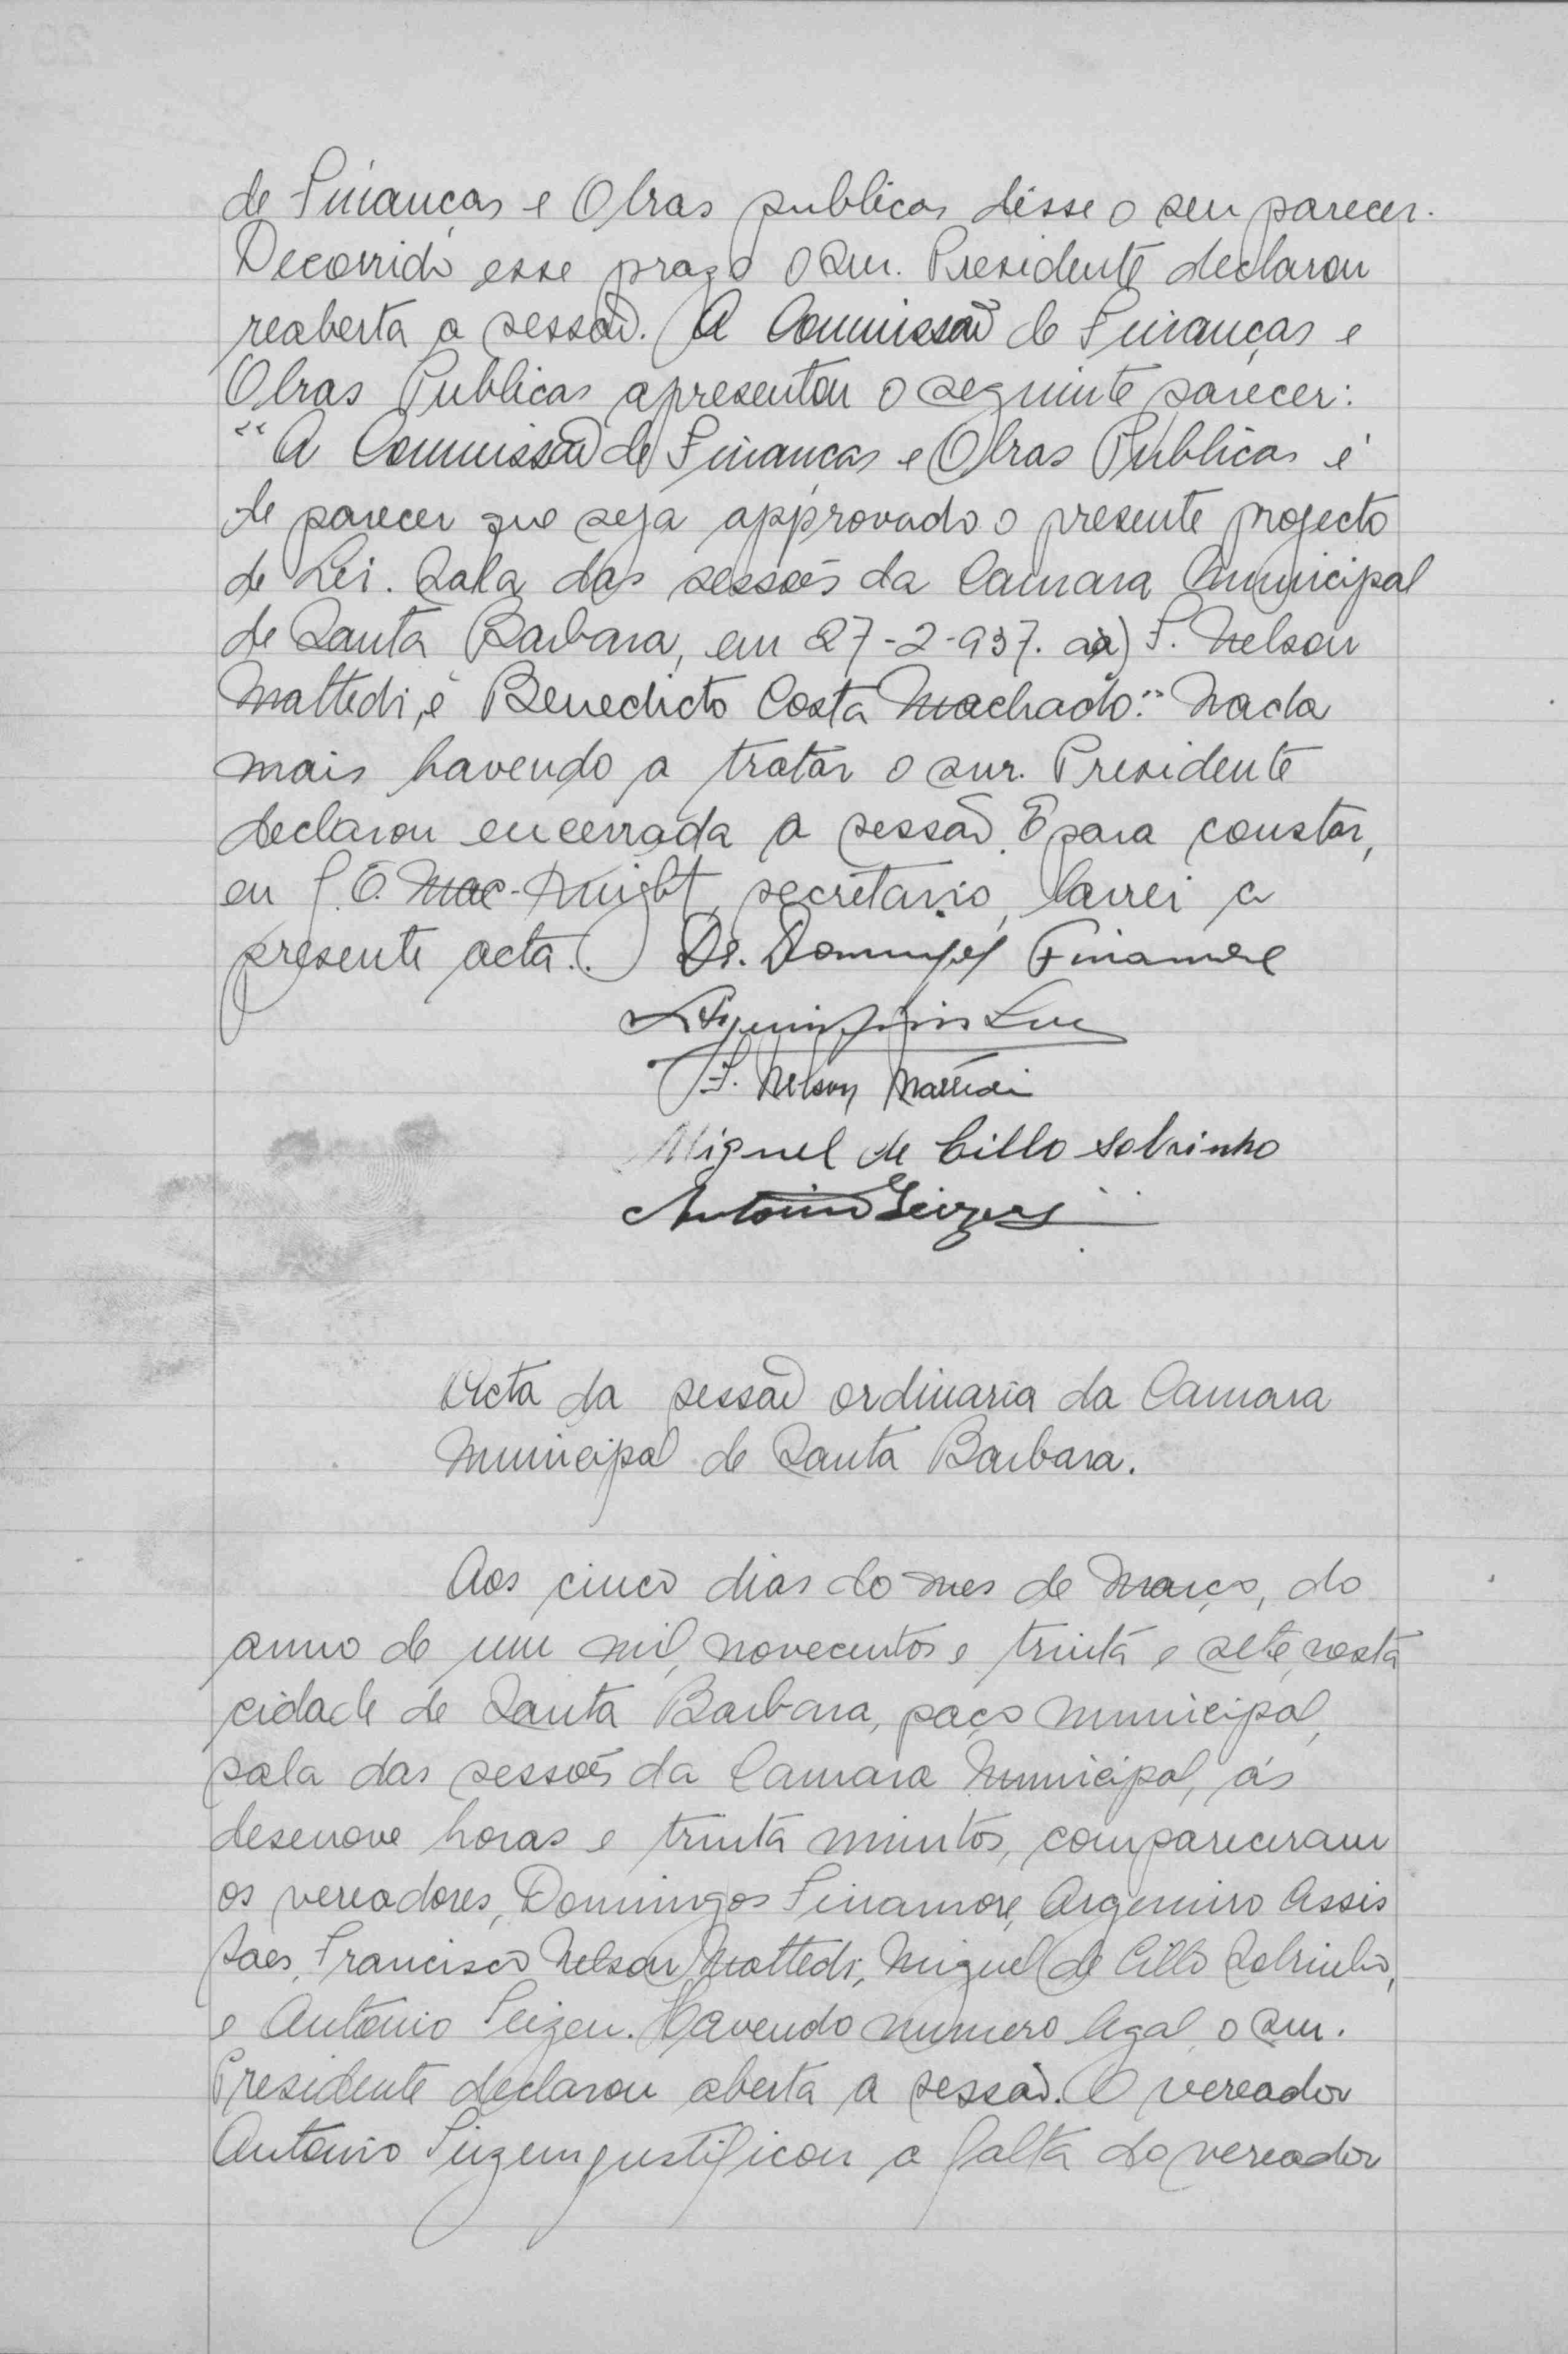 de Finanças e Obras publicas désse o seu parecer.
Decorrido esse prazo o snr. Presidente declarou
reaberta a sessão. A Commissão de Finanças e
Obras Publicas apresentou o seguinte parecer:
"A Commissão de Finanças e Obras Publicas é
de parecer que seja approvado o presente projecto
de Lei. Sala das sessões da Camara Municipal
de Santa Barbara, em 27-2-937. aa) F. Nelson
Mattedi, e Benedicto Costa Machado." Nada
mais havendo a tratar o snr. Presidente
declarou encerrada a sessão. E para constar,
eu J. E. Mac-Knight, secretario, lavrei a
presente acta. Dr. Domingos Finamore
F. Nelson Mattedi
Miguel de Cillo Sobrinho
Antonio
Acta da sessão ordinaria da Camara
Municipal de Santa Barbara.
Aos cinco dias do mes de Março, do
anno de um mil, novecentos e trinta e sete, nesta
cidade de Santa Barbara, paço municipal,
sala das sessões da Camara Municipal, ás
desenove horas e trinta minutos, compareceram
os vereadores, Domingos Finamore, Argemiro Assis
Saes, Francisco Nelson Mattedi, Miguel de Cillo Sobrinho,
e Antonio. Havendo numero legal, o snr.
Presidente declarou aberta a sessão. O vereador
Antonio justificou a falta do vereador